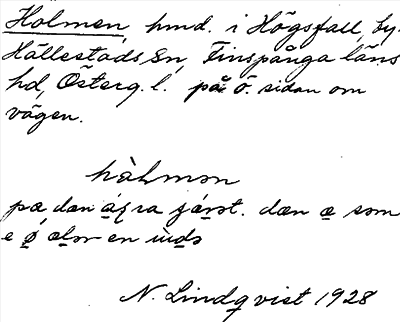 Holmen, hmd. i Högsfall, by.
Hällestads Sn, Finspånga läns
hd, Österg. l. på ö. sidan om
vägen.
hòlmən
pæ dæn
dæn æ som
en
N. Lindqvist 1928